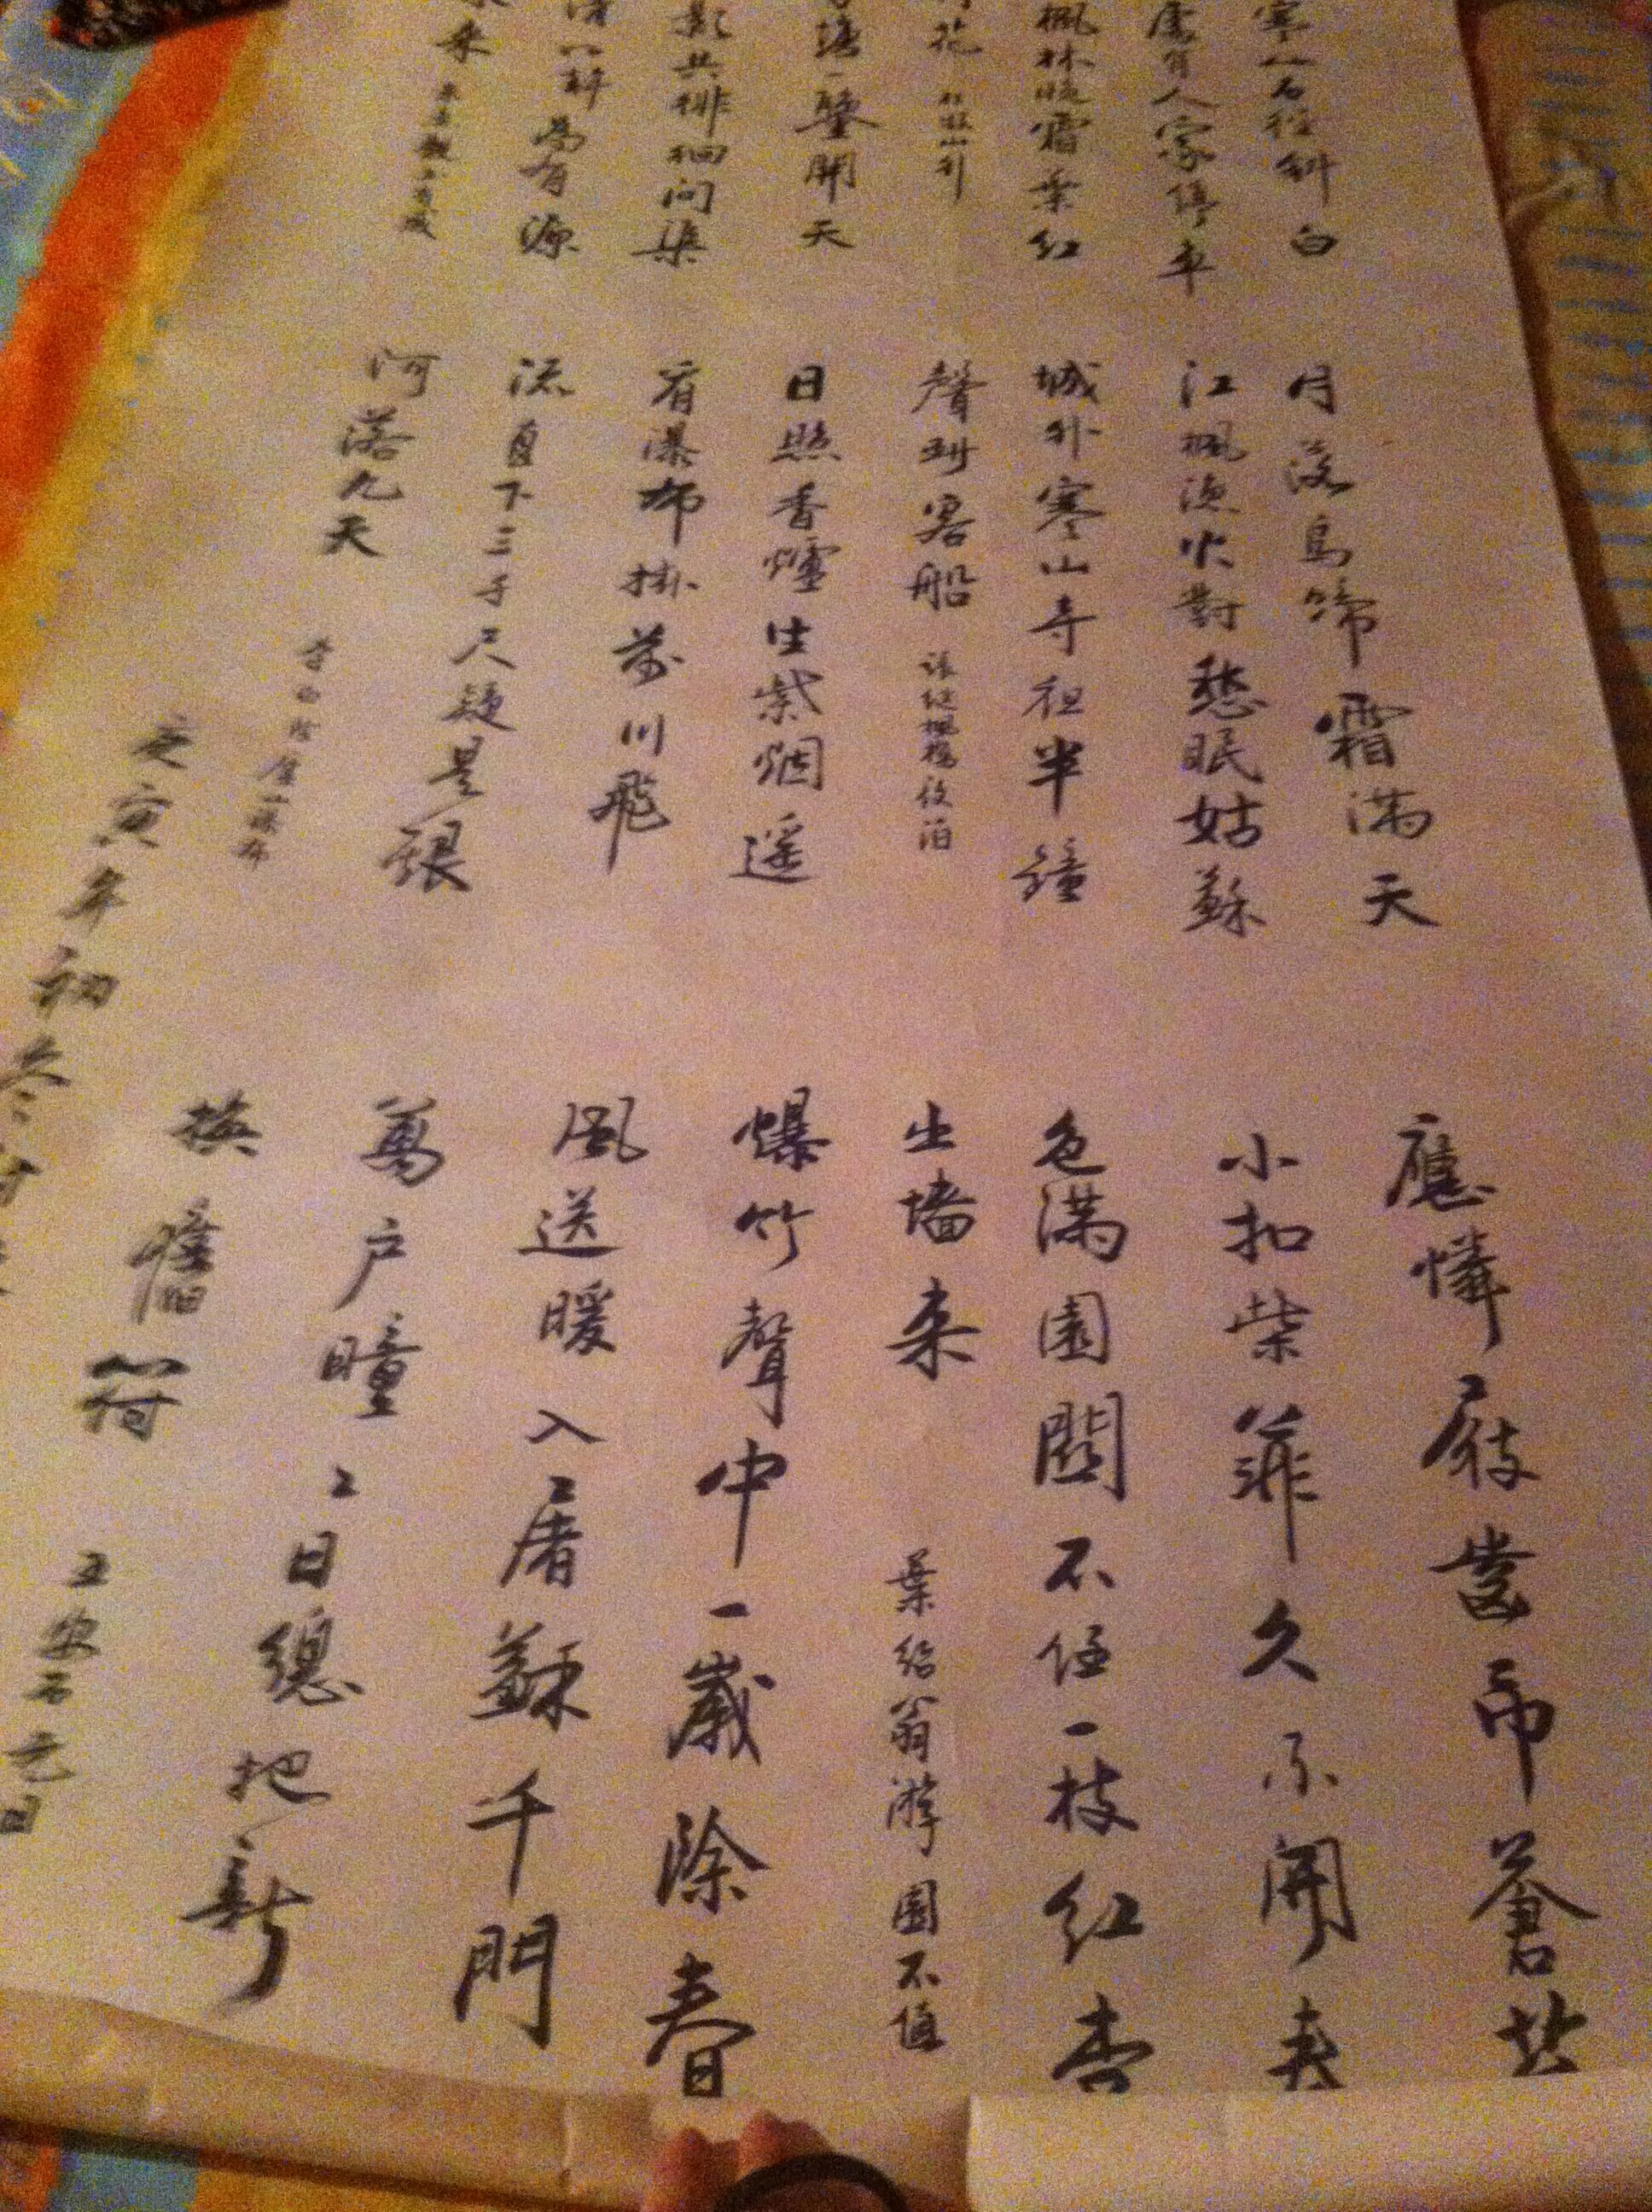 寒山石徑斜白
處有人家停車
楓林晚霜葉紅
月花 杜牧山行
塘一鑒開天
影共徘徊問渠
清如許為有源
水来 朱熹觀書有感
月落烏啼霜滿天
江楓漁火對愁眠姑蘇
城外寒山寺夜半鐘
聲到客船 張繼楓橋夜泊
日照香爐生紫烟遥
看瀑布掛前川飛
流直下三千尺疑是銀
河落九天
李白望廬山瀑布
應憐屐齒印蒼苔
小扣柴扉久不開春
色滿園關不住一枝紅杏
出墙来 葉紹翁游園不值
爆竹聲中一歲除春
風送暖入屠蘇千門
萬户曈〻日總把新
換舊符 王安石元日
庚寅年初冬